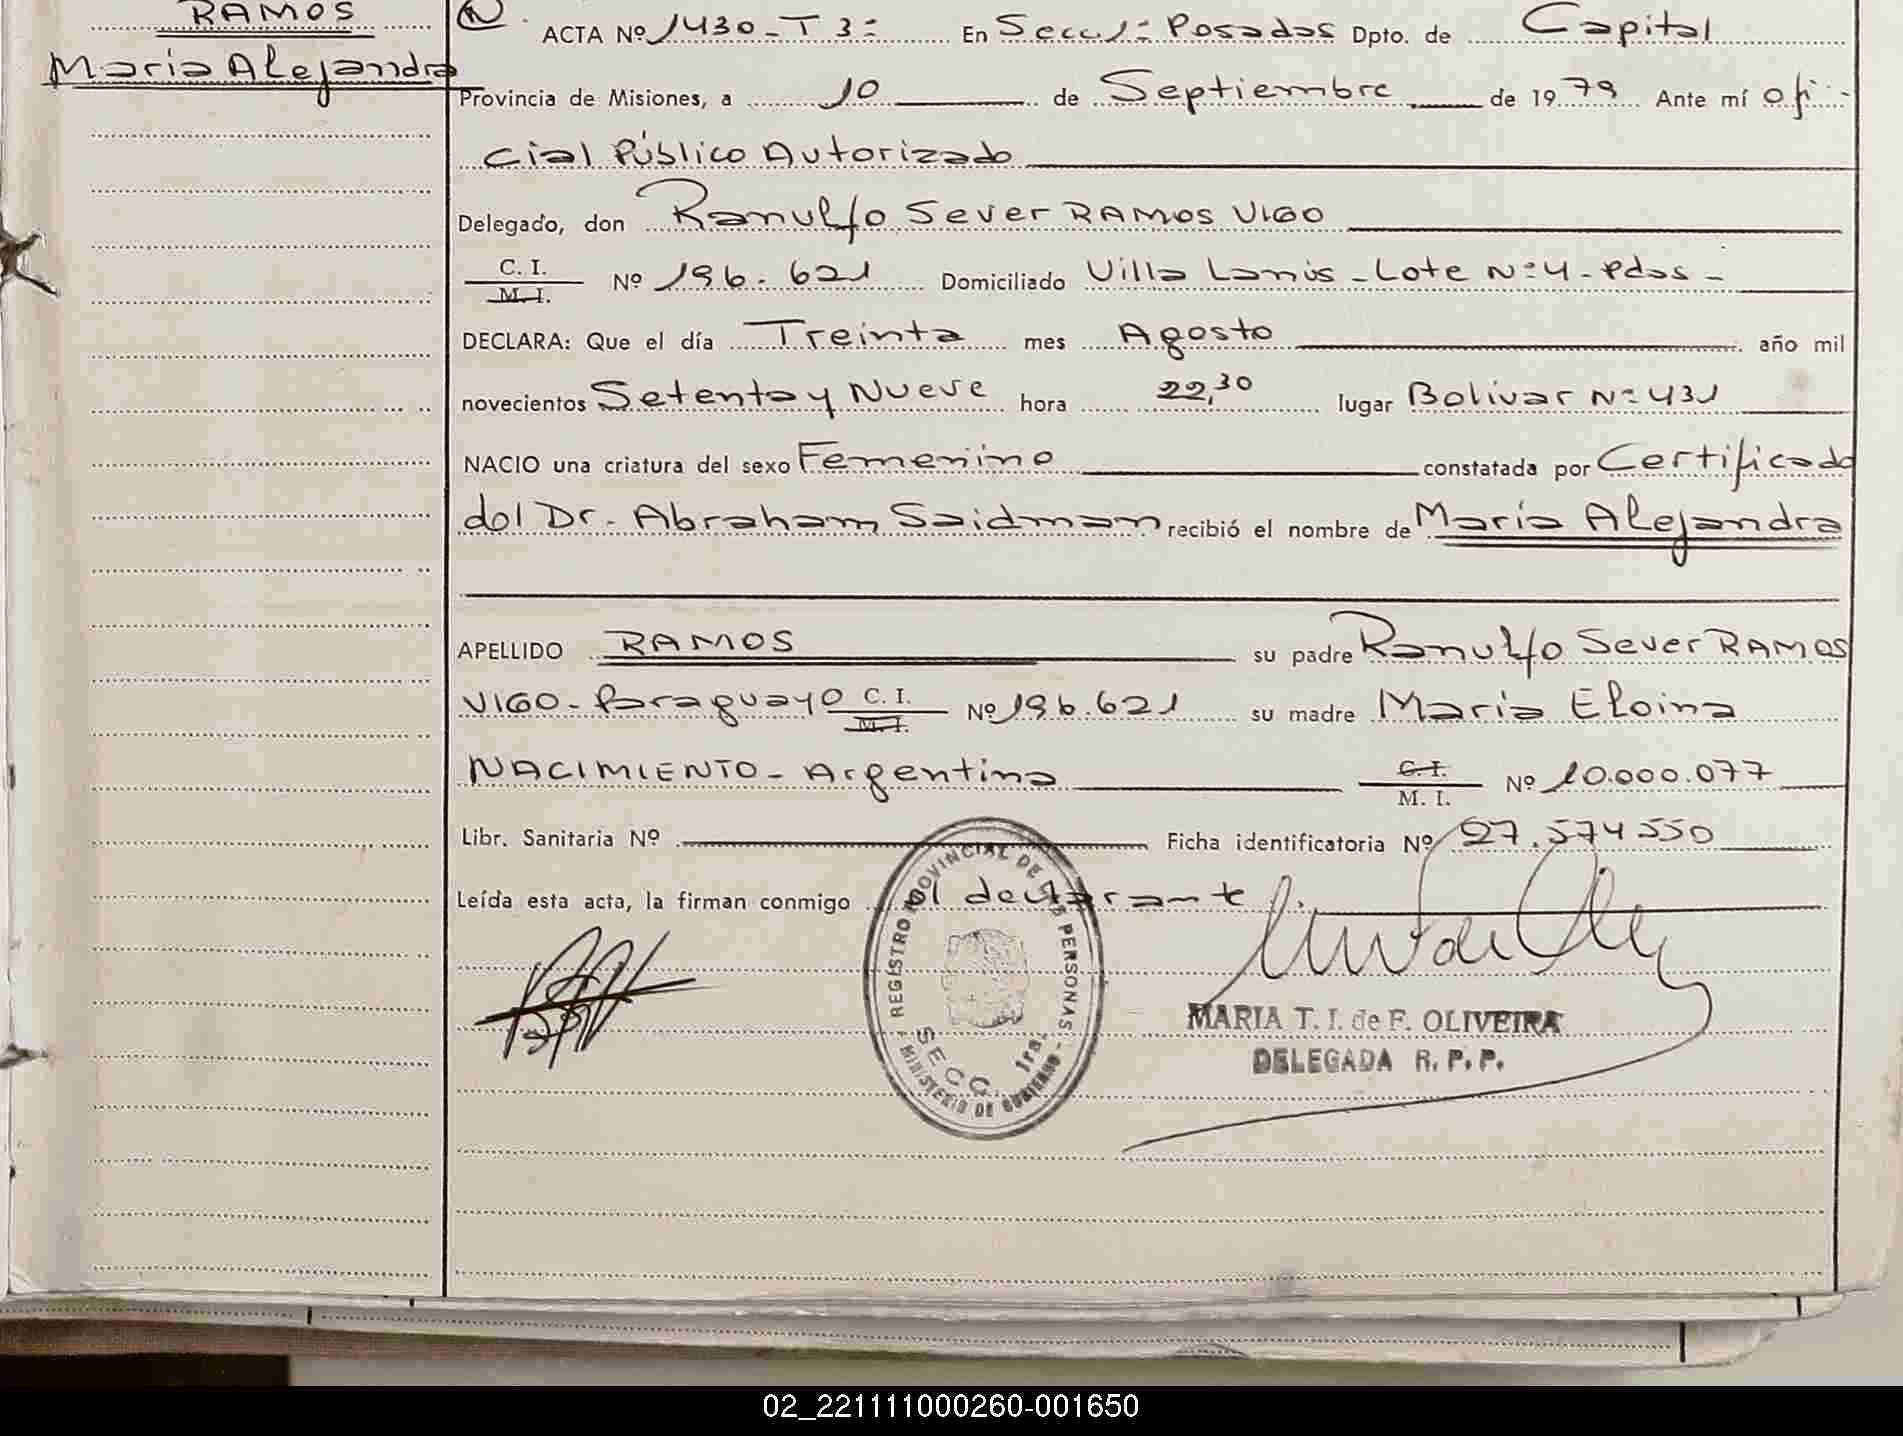 RAMOS
Maria Alejandra
N. ACTA Nº 1430-T3º En Secc.1º Posadas Dpto. de Capital
Provincia de Misiones, a 10 de Septiembre de 1979 Ante mí ofi-
cial Público Autorizado
Delegado, don Ranulfo Sever RAMOS VIGO
C. I.
M. I. Nº 196.621 Domiciliado Villa Lanús - Lote Nº 4 - Pdas -
DECLARA: Que el día Treinta mes Agosto año mil
novecientos Setenta y Nueve hora 22,30 lugar Bolivar Nº 431
NACIO una criatura del sexo Femenino constatada por Certificado
del Dr. Abraham Saidman recibió el nombre de María Alejandra
APELLIDO RAMOS su padre Ranulfo Sever RAMOS
VIGO - Paraguayo C. I. M. I. Nº 196.621 su madre María Eloina
NACIMIENTO - Argentina C. I. M. I. Nº 10.000.077
Libr. Sanitaria Nº Ficha identificatoria Nº 27.574550
Leída esta acta, la firman conmigo el declarante.
REGISTRO PROVINCIAL DE LAS PERSONAS
SECC. 1ra.
MINISTERIO DE GOBIERNO
MARIA T. I. de F. OLIVEIRA
DELEGADA R. P. P.
02_221111000260-001650